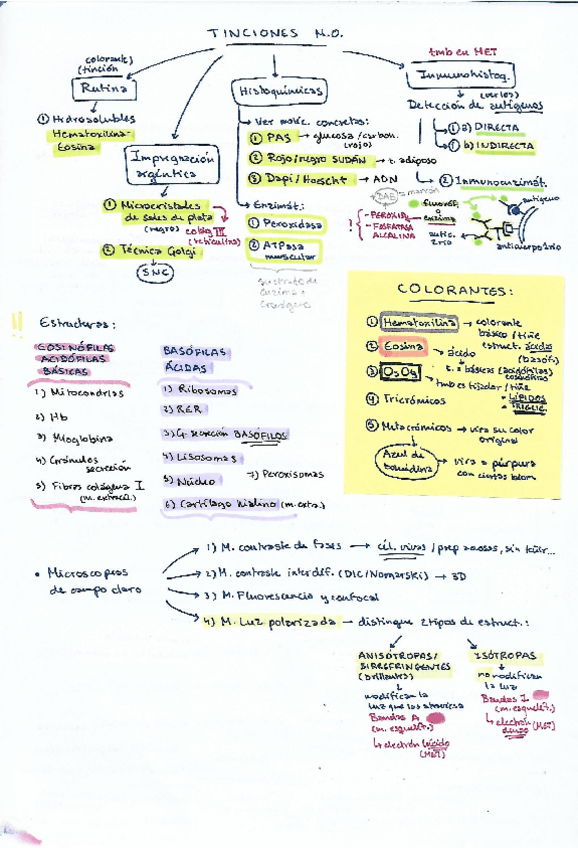 TINCIONES M.O.
colorante)
(tinción
Rutina
① Hidrosolubles
Hematoxilina-
Eosina
Impregnación
argéntica
① Microcristales
de sales de plata
(negro) colág III
(reticulina)
② Técnica Golgi
SNC
Histoquímicas
Ver moléc. concretas:
① PAS → glucosa/carboh.
(rojo)
② Rojo/negro SUDÁN → t. adiposo
③ Dapi/Hoescht → ADN
Enzimát:
① Peroxidasa
② ATPasa
muscular
sustrato de
enzima +
tmb en MET
Inmunohistoq.
Detección de antígenos
① a) DIRECTA
① b) INDIRECTA
② Inmunoenzimát.
DAB → marrón
! - PEROXID.
- FOSFATASA
ALCALINA
fluoróf.
o
enzima
antic.
2rio
antígeno
anticuerpo 1rio
COLORANTES:
① Hematoxilina → colorante
básico/tiñe
estruct. ácidas
(basóf.)
② Eosina → ácido
t. e. básicas (acidófilas)
③ OsO4
tmb es fijador/tiñe
• LÍPIDOS
• TRIGLIC.
④ Tricrómicos
⑤ Metacrómicos → vira su color
original
Azul de
toluidina → vira a púrpura
con ciertas biom.
!! Estructuras:
EOSINÓFILAS
ACIDÓFILAS
BÁSICAS
1) Mitocondrias
2) Hb
3) Mioglobina
4) Gránulos
secreción
5) Fibras colágena I
(m. extracel.)
BASÓFILAS
ÁCIDAS
1) Ribosomas
2) RER
3) G. secreción BASÓFILOS
4) Lisosomas
5) Núcleo
7) Peroxisomas
6) Cartílago hialino (m. extra.)
• Microscopios
de campo claro
1) M. contraste de fases → cél. vivas / prep acuosas, sin teñir...
2) M. contraste interdif. (DIC/Nomarski) → 3D
3) M. Fluorescencia y confocal
4) M. Luz polarizada → distingue 2 tipos de estruct.:
ANISÓTROPAS/
BIRREFRINGENTES
(brillantes)
modifican la
luz que las atraviesa
Bandas A
(m. esquelét.)
↳ electrón lúcido
(MET)
ISÓTROPAS
no modifican
la luz
Bandas I
(m. esquelét.)
↳ electrón (MET)
denso